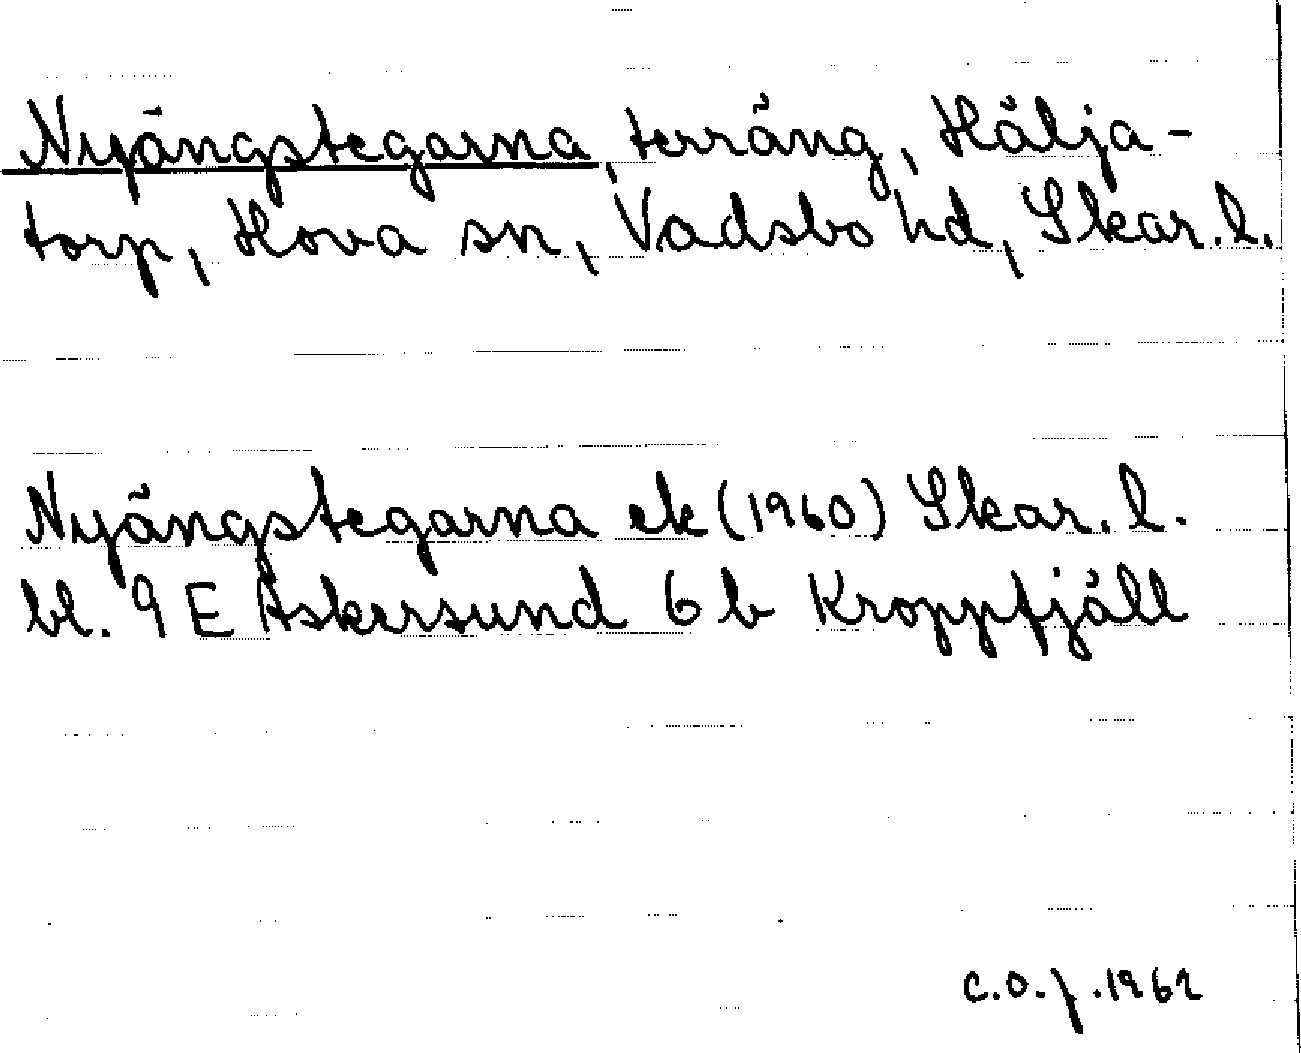 Nyängstegarna, terräng, Hälja-
torp, Hova sn, Vadsbo hd, Skar. l.
Nyängstegarna ek (1960) Skar. l.
bl. 9 E Askersund 6 b Kroppfjäll
C.O.J. 1962